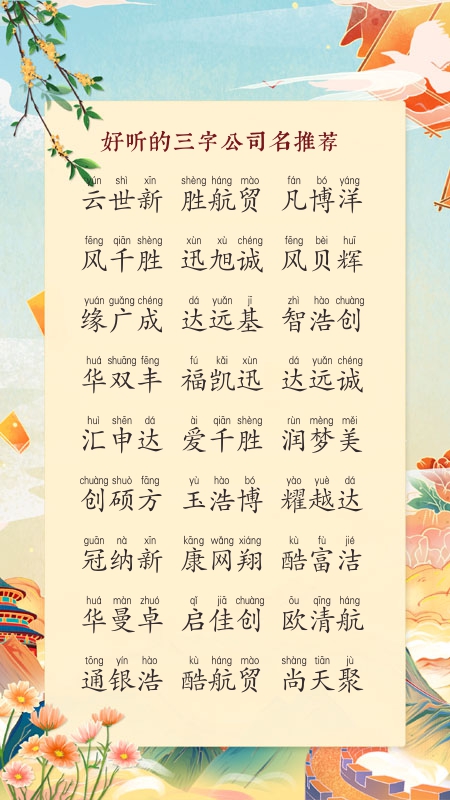 好听的三字公司名推荐
yún shì xīn shèng háng mào fán bó yáng
云世新 胜航贸 凡博洋
fēng qiān shèng xùn xù chéng fēng bèi huī
风千胜 迅旭诚 风贝辉
yuán guǎng chéng dá yuǎn jī zhì hào chuàng
缘广成 达远基 智浩创
huá shuāng fēng fú kǎi xùn dá yuǎn chéng
华双丰 福凯迅 达远诚
huì shēn dá ài qiān shèng rùn mèng měi
汇申达 爱千胜 润梦美
chuàng shuò fāng yù hào bó yào yuè dá
创硕方 玉浩博 耀越达
guān nà xīn kāng wǎng xiáng kù fù jié
冠纳新 康网翔 酷富洁
huá màn zhuó qǐ jiā chuàng ōu qīng háng
华曼卓 启佳创 欧清航
tōng yín hào kù háng mào shàng tiān jù
通银浩 酷航贸 尚天聚